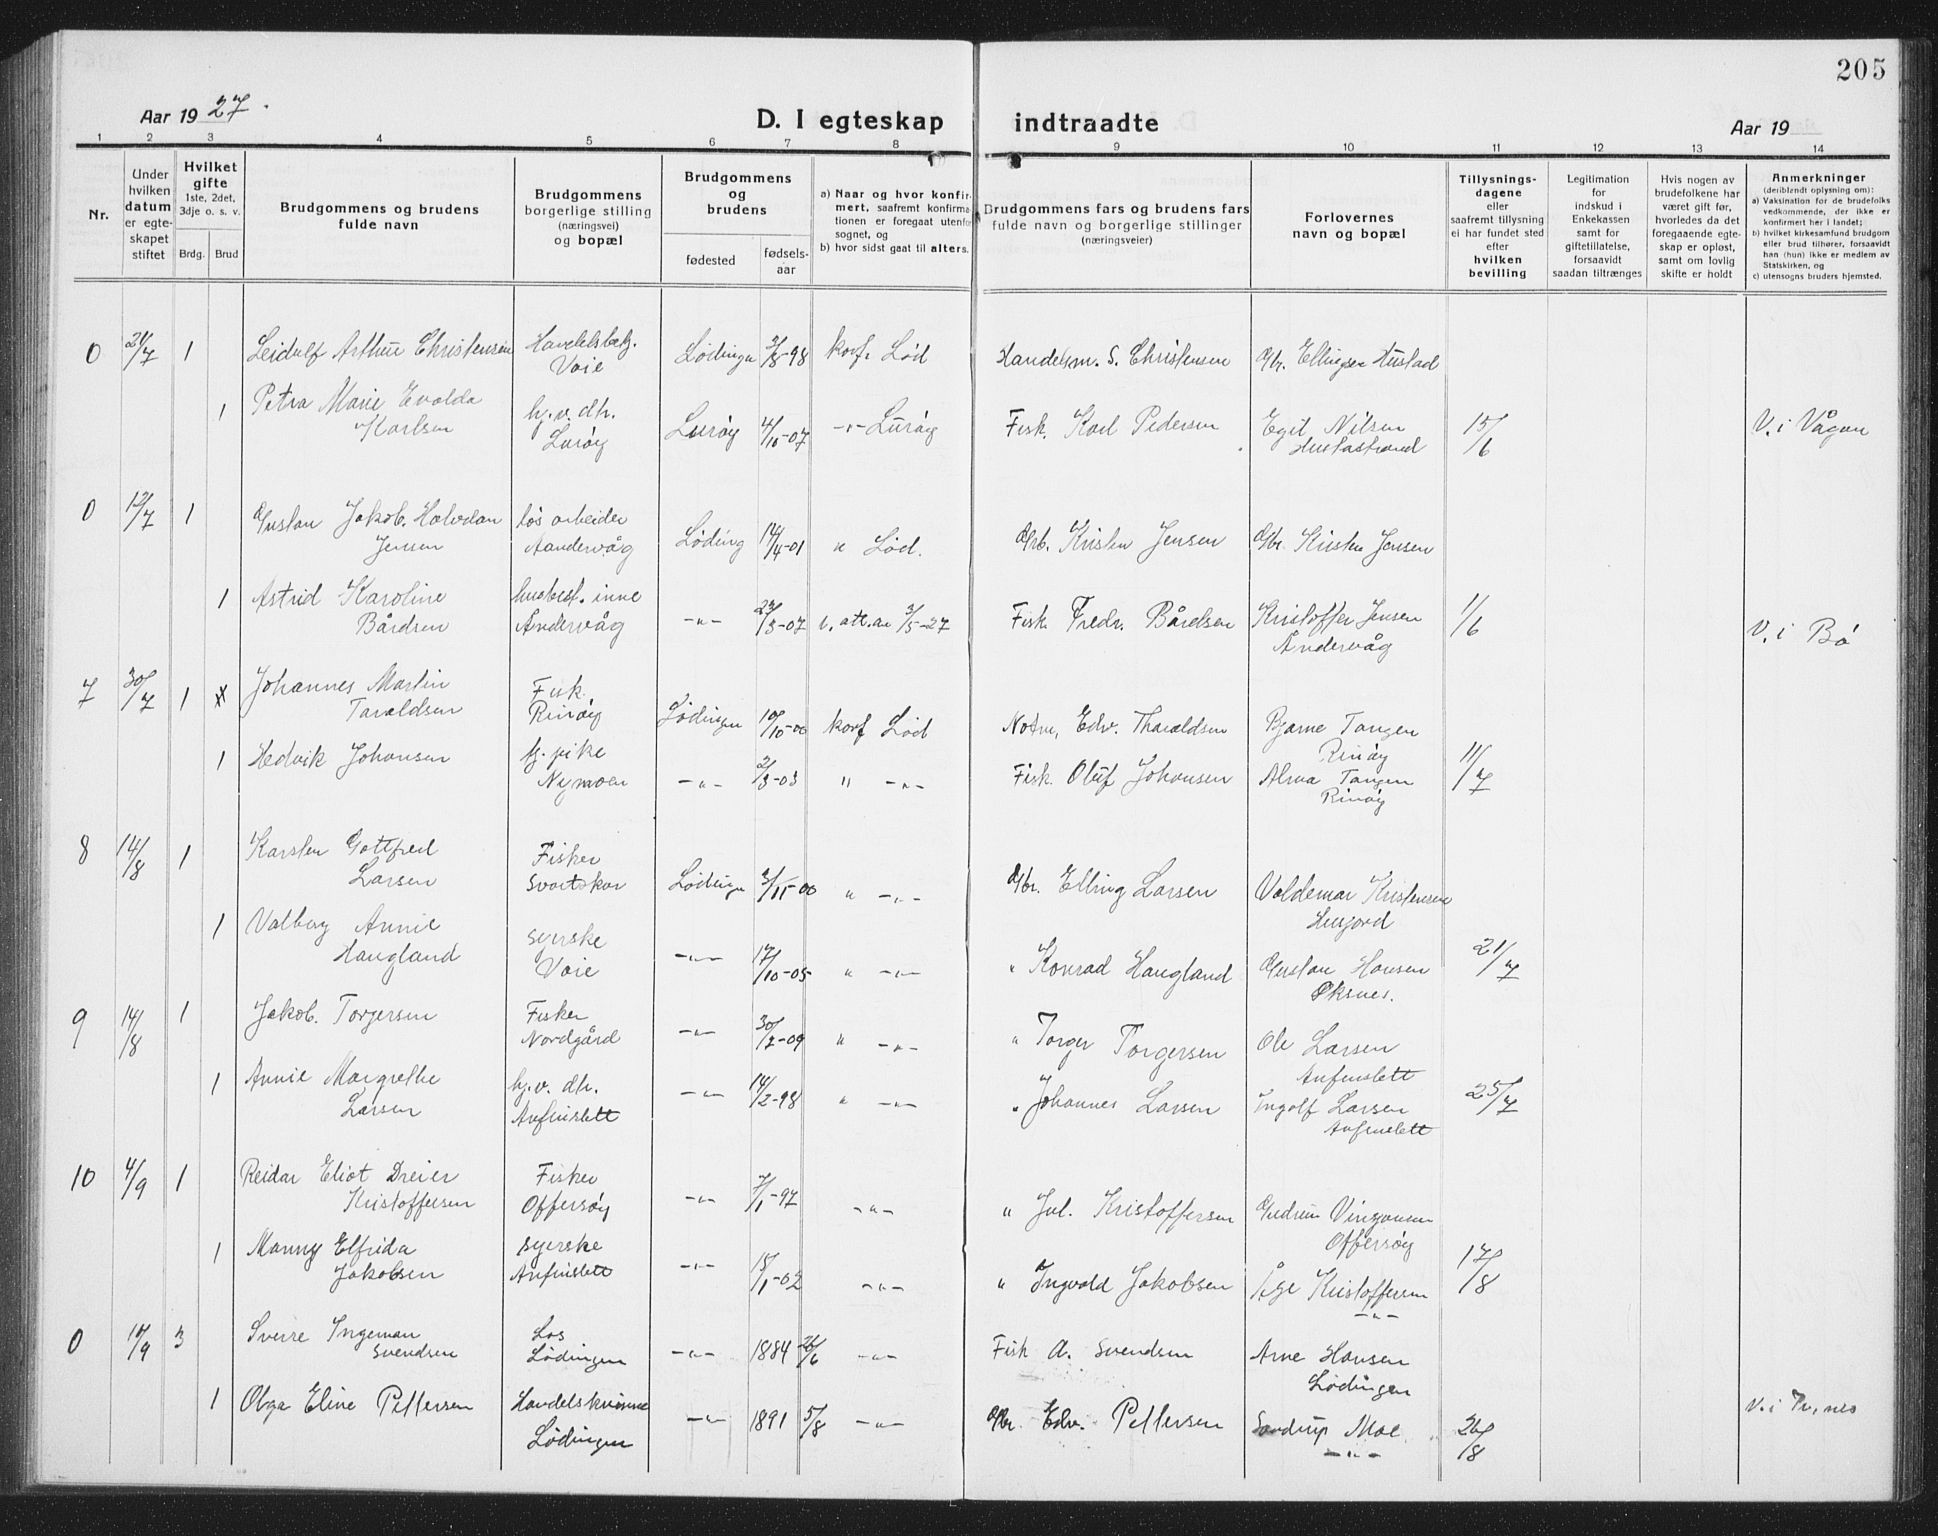 205
Aar 1927.
D. I egteskap indtraadte
Aar 19
1 2 3 4 5 6 7 8 9 10 11 12 13 14
Nr.
Under
hvilken
datum
er egte-
skapet
stiftet
Hvilket
gifte
1ste, 2det,
3dje o. s. v.
Brdg. Brud
Brudgommens og brudens
fulde navn
Brudgommens
borgerlige stilling
(næringsvei)
og bopæl
Brudgommens
og
brudens
fødested
fødsels-
aar
a) Naar og hvor konfir-
mert, saafremt konfirma-
tionen er foregaat utenfor
sognet, og
b) hvor sidst gaat til alters.
Brudgommens fars og brudens fars
fulde navn og borgerlige stillinger
(næringsveier)
Forlovernes
navn og bopæl
Tillysnings-
dagene
eller
saafremt tillysning
ei har fundet sted
efter
hvilken
bevilling
Legitimation
for
indskud i
Enkekassen
samt for
giftetillatelse,
forsaavidt
saadan tiltrænges
Hvis nogen av
brudefolkene har
været gift før,
hvorledes da det
foregaaende egte-
skap er opløst,
samt om lovlig
skifte er holdt
Anmerkninger
(deriblandt oplysning om):
a) Vaksination for de brudefolks
vedkommende, der ikke er
konfirmert her i landet;
b) hvilket kirkesamfund brudgom
eller brud tilhører, forsaavidt
han (hun) ikke er medlem av
Statskirken, og
c) utensogns bruders hjemsted.
0 1 Leidulf Arthur Christensen
Voie
Lødingen 98 konf. Lød
Handelsm. S. Christensen
Gbr. Ellingsen Hustad
1 Petra Marie Evalda
Karlsen
hj.v. dtr.
Lurøy
Lurøy 4/10-07 -"- Lurøy
Fisk. Karl Pedersen
Egil Nilsen
15/6
V. i Vågan
0 1 Gustav Jakob. Halvdan
Jensen
løs arbeider
Aandervåg
Løding 14/4-01 " Lød.
Grb. Kristen Jensen
Gbr. Kristen Jensen
1 Astrid Karoline
Bårdsen
husbest. inne
Åndervåg
-"- 23/3-07
Fisk. Fredr. Bårdsen
Kristoffer Jensen
Åndervåg
1/6
V. i Bø
7 30/7 1 Johannes Martin
Taraldsen
Fisk.
Rinøy
Lødingen 10/10-00 konf Lød
Edv. Tharaldsen
Bjarne Tangen
Rinøy
1 Hedvik Johansen
hj. pike
Nymoen
-"- 2/3-03 " -"-
Fisk. Oluf Johansen
Alma Tangen
Rinøy
11/7
8 14/8 1 Karsten Gottfred
Larsen
Fisker
Svartskar
Lødingn 3/11-00 " -"-
Gbr. Elling Larsen
Valdemar Kristensen
Husjord
1 Valborg Annie
Haugland
syerske
Voie
-"- 17/10-05 " -"-
" Konrad Haugland
Gustav Hansen
Øksnes.
21/7
9 14/8 1 Jakob. Torgersen
Fisker
Nordgård
-"- " -"-
" Torger Torgersen
Ole Larsen
Anfinslett
1 Annie Margrethe
Larsen
hj.v. dtr.
Anfinslett
-"- 14/2-98 " -"-
" Johannes Larsen
Ingolf Larsen
Anfinslett
25/7
10 4/9 1 Reidar Eliot Dreier
Kristoffersen
Fisker
Offersøy
-"- 7/1-97 -"-
" Jul. Kristoffersen
Gudrun
Offersøy
1 Manny Elfrida
Jakobsen
syerske
Anfinslett
-"- 15/1-02 -"-
" Ingvald Jakobsen
Åge Kristoffersen
-"-
17/8
0 3 Sverre Ingeman
Svendsen
Los
Lødingen
-"- 1884 26/6 -"-
Fisk A. Svendsen
Arne Hansen
Lødingen
1 Olga Eline Pettersen
Handelskvinne
Lødingen
-"- 1891 5/8 -"-
Gbr. Edv. Pettersen
Moe
-"-
26/8